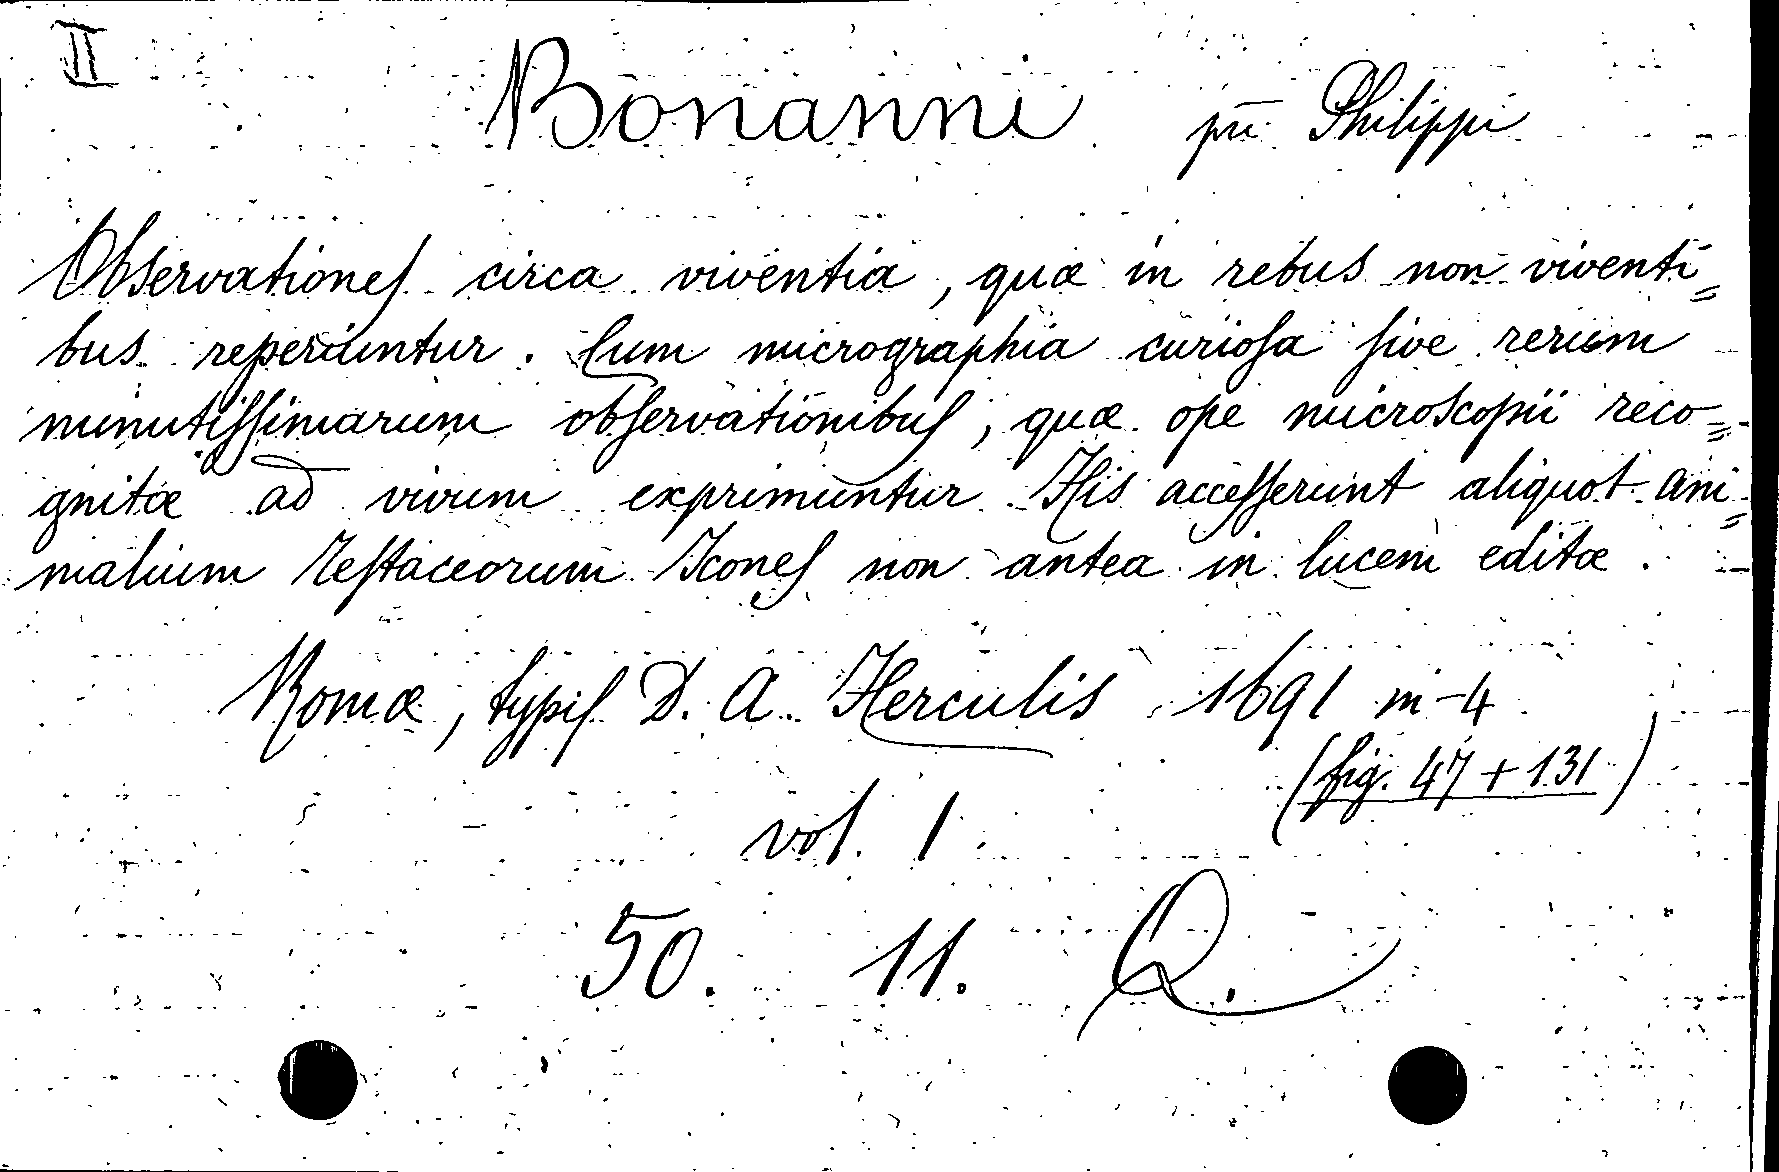 II
Bonanni pñi Philippi
Observationeſ circa viventia, quæ in rebus non viventi=
bus reperiuntur. Cum micrographia curioſa ſive rerum
minutiſſimarum obſervationibuſ, quæ ope microscopii reco=
gnitæ ad vivum exprimuntur. His acceſſerunt aliquot ani=
malium Teſtaceorum Iconeſ non antea in lucem editæ.
Romæ, typiſ D. A. Herculis 1691 in-4
(fig. 47 + 131)
vol. 1
50. 11. Q.